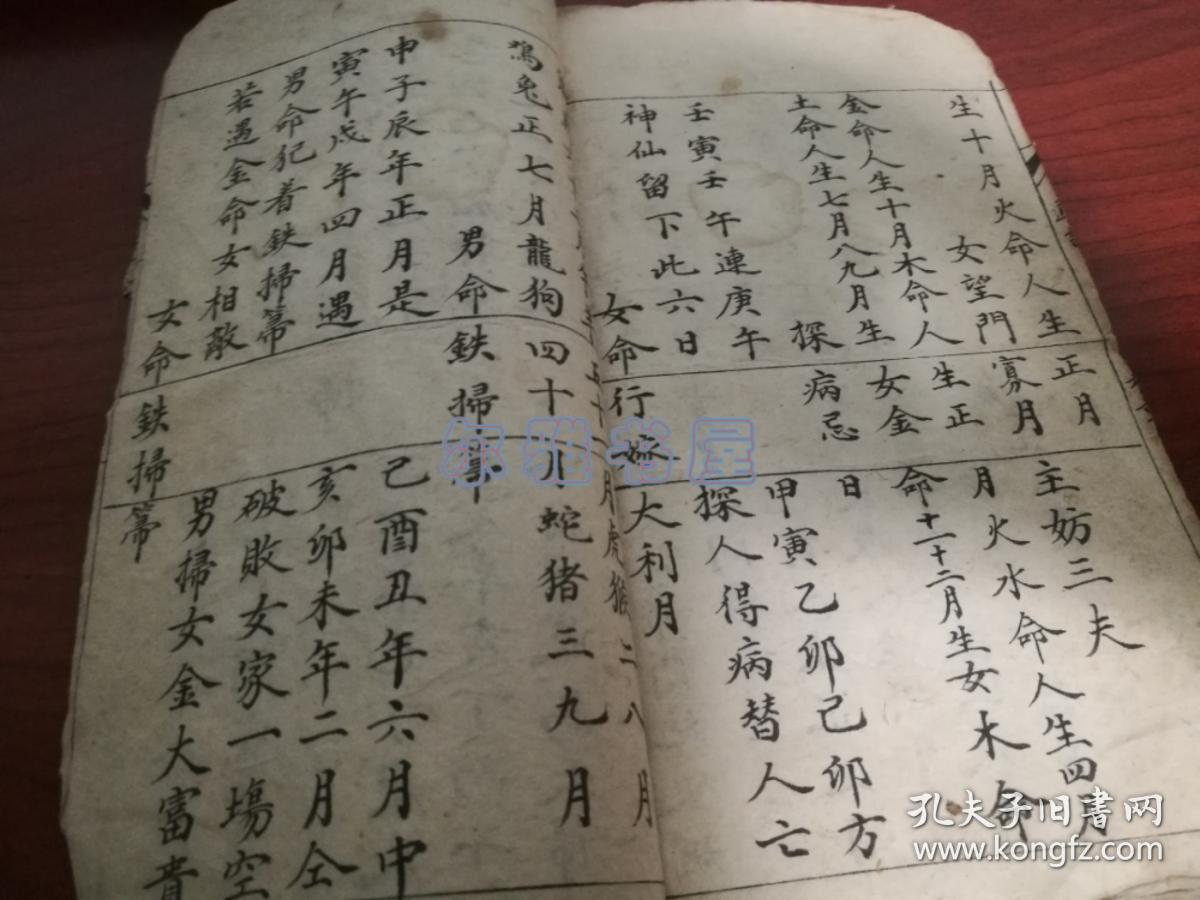 生十月火命人生正月 主妨三夫
女望門寡月 月火水命人生四月
金命人生十月木命人生正 命十一十二月生女木命
土命人生七月八九月生女金
探病忌日
壬寅壬午連庚午 甲寅乙卯己卯方
神仙留下此六日 探人得病替人亡
女命行嫁大利月
月虎猴二八月
鷄兔正七月龍狗四十月蛇猪三九月
男命鉄掃箒
申子辰年正月是 己酉丑年六月中
寅午戌年四月遇 亥卯未年二月仝
男命犯着鉄掃箒 破敗女家一塲空
若遇金命女相敵 男掃女金大富貴
女命鉄掃箒
尔雅书屋
孔夫子旧书网
www.kongfz.com